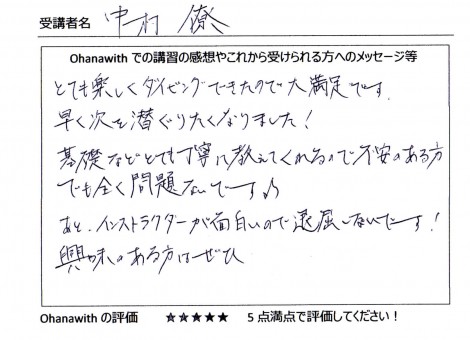 受講者名 中村 僚
Ohanawith での講習の感想やこれから受けられる方へのメッセージ等
とても楽しくダイビングできたので大満足です。
早く次も潜ぐりたくなりました！
基礎などとても丁寧に教えてくれるので不安のある方
でも全く問題ないでーす♪
あと、インストラクターが面白いので退屈しないでーす！
興味のある方はぜひ
Ohanawith の評価 ★★★★★ 5 点満点で評価してください！